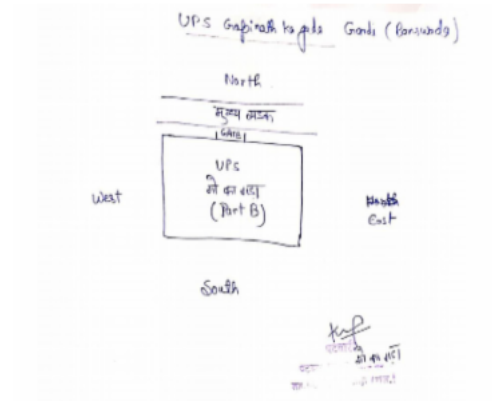 UPS Gopinath ka gada Gonds (Banswada)
North
मुख्य सडक
GATE
UPS
गो का गडा
(Part B)
West
East
South
पटवारी
गो का गडा